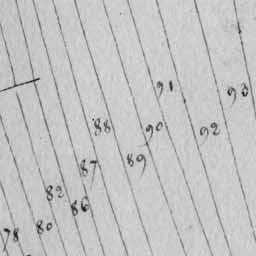 93
91
88
90
92
89
87
82
86
80
78